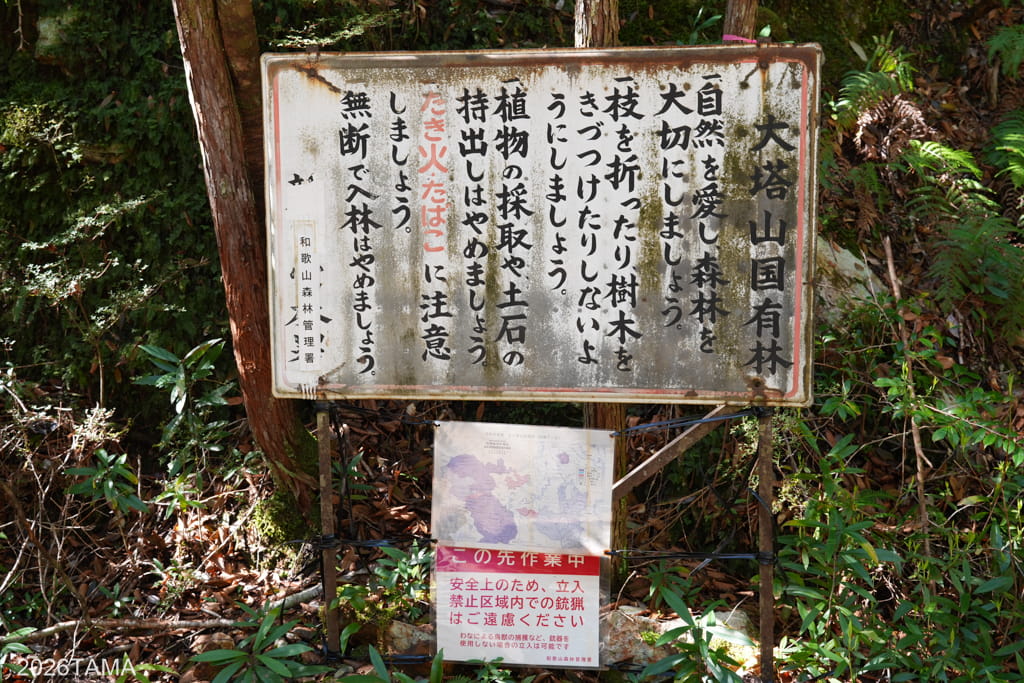 大塔山国有林
一自然を愛し森林を
大切にしましょう。
一枝を折ったり樹木を
きづつけたりしないよ
うにしましょう。
一植物の採取や、土石の
持出しはやめましょう。
たき火たばこに注意
しましょう。
無断で入林はやめましょう。
和歌山森林管理署
この先作業中
安全上のため、立入
禁止区域内での銃猟
はご遠慮ください
わなによる鳥獣の捕獲など、銃器を
使用しない場合の立入は可能です
和歌山森林管理署
2026TAMA